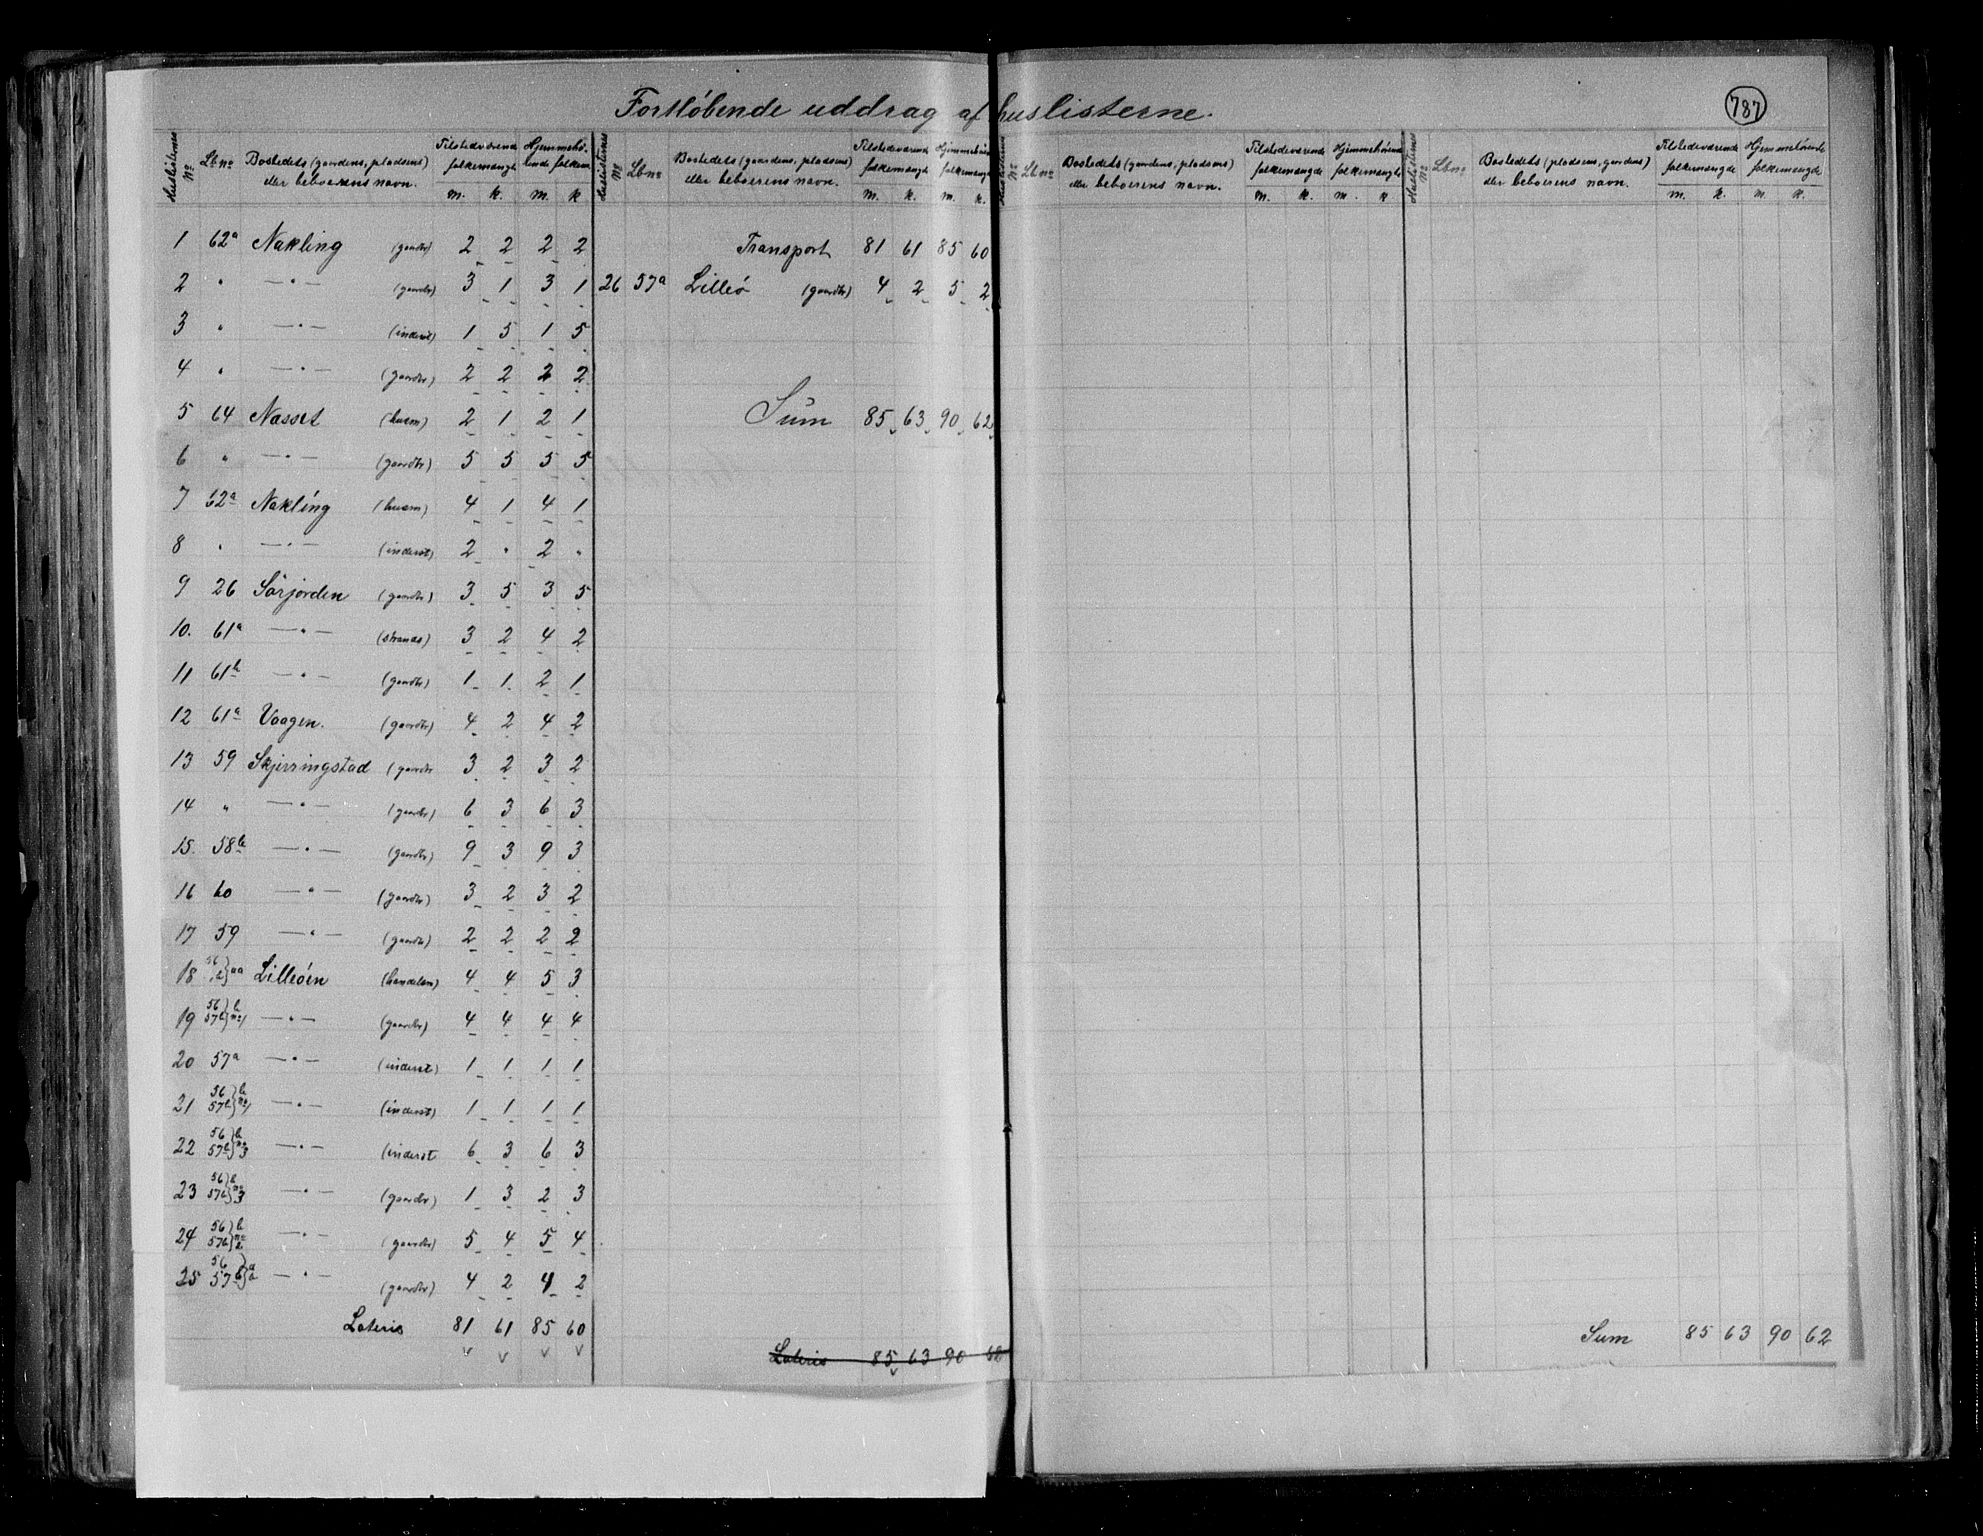 Fortløbende uddrag af huslisterne.
787
Huslisternes № Lb№ Bostedets (gaardens, pladsens) eller beboerens navn. Tilstedeværende folkemængde m. k. Hjemmehørende folkem. m. k
Huslisternes № Lb№ Bostedets (gaardens, pladsens) eller beboerens navn. Tilstedeværende folkemængde m. k. Hjemmehørende folkemængde m. k.
Huslisternes № Lb№ Bostedets (gaardens, pladsens) eller beboerens navn. Tilstedeværende folkemængde m. k. Hjemmehørende folkemængde m. k
Huslisternes № Lb№ Bostedets (pladsens, gaardens) eller beboerens navn. Tilstedeværende folkemængde m. k. Hjemmehørende folkemængde m. k.
1 62a Nakling (gaardbr) 2 2 2 2
2 " —"— (gaardbr) 3 1 3 1
3 " —"— (inderst) 1 5 1 5
4 " —"— (gaardbr) 2 2 2 2
5 64 Nasset (husm) 2 1 2 1
6 " —"— (gaardbr) 5 5 5 5
7 62a Nakling (husm) 4 1 4 1
8 " —"— (inderst) 2 " 2 "
9 26 Sørjorden (gaardbr) 3 5 3 5
10. 61a —"— (strands) 3 2 4 2
11 61b —"— (gaardbr) 1 1 2 1
12 61a Vaagen. (gaardbr) 4 2 4 2
13 59 Skjerringstad (gaardbr 3 2 3 2
14 " —"— (gaardbr) 6 3 6 3
15. 58b —"— (gaardbr) 9 3 9 3
16 60 —"— (gaardbr) 3 2 3 2
17 59 —"— (gaardbr) 2 2 2 2
18 56 aa Lilleøen (handelsm) 4 4 5 3
19 56 57b} b №1 —"— (gaardbr) 4 4 4 4
20 57a —"— (inderst) 1 1 1 1
21 56 57b} b №1 —"— (inderst) 1 1 1 1
22 56 57b} b №3 —"— (inderst 6 3 6 3
23 56 57b} b №3 —"— (gaardbr) 1 3 2 3
24 56 57b} b №2 —"— (gaardbr) 5 4 5 4
25 56 57b} a —"— (gaardbr) 4 2 4 2
Lateris 81 61 85 60
Transport 81 61 85 60
26 57a Lilleø (gaardbr) 4 2 5 2
Sum 85 63 90 62
Lateris 85 63 90 62
Sum 85 63 90 62